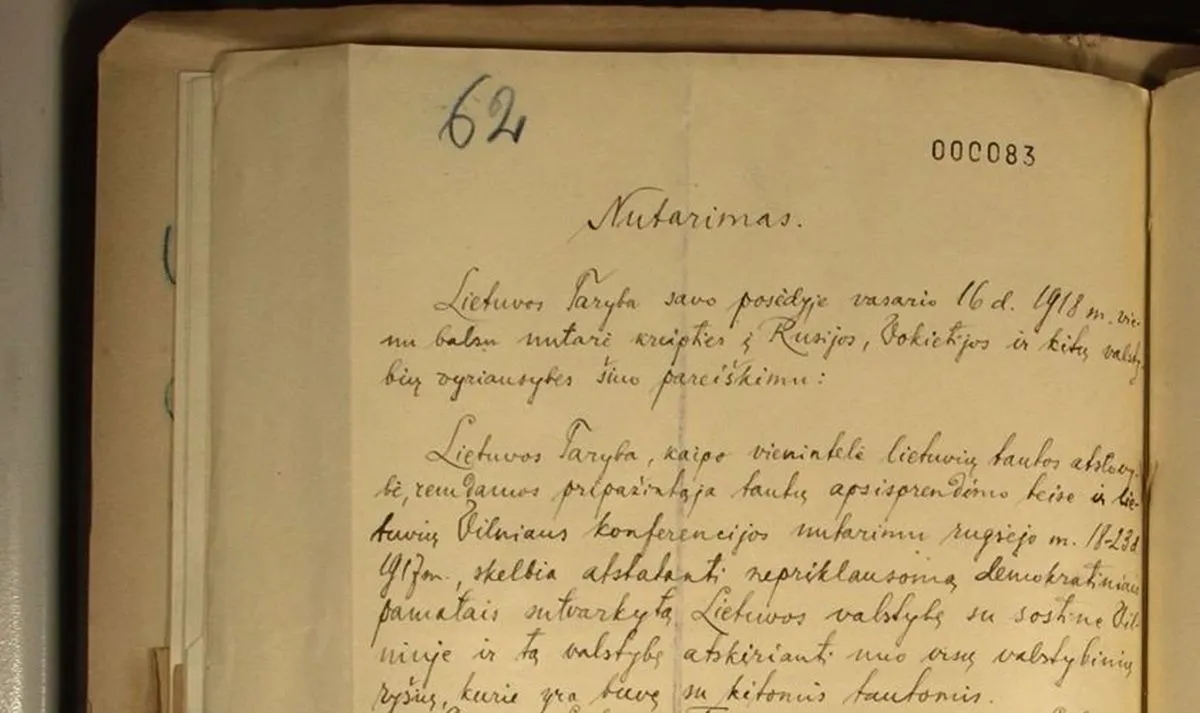 62
000083
Nutarimas.
Lietuvos Taryba savo posėdyje vasario 16 d. 1918 m. vie-
nu balsu nutarė kreipties į Rusijos, Vokietijos ir kitų valsty-
bių vyriausybes šiuo pareiškimu:
Lietuvos Taryba, kaipo vienintelė lietuvių tautos atstovy-
bė, remdamos pripažintąja tautų apsisprendimo teise ir lie-
tuvių Vilniaus konferencijos nutarimu rugsėjo m. 18-23 d.
1917 m., skelbia atstatanti nepriklausomą demokratiniais
pamatais sutvarkytą Lietuvos valstybę su sostine Vil-
niuje ir tą valstybę atskirianti nuo visų valstybinių
ryšių, kurie yra buvę su kitomis tautomis.